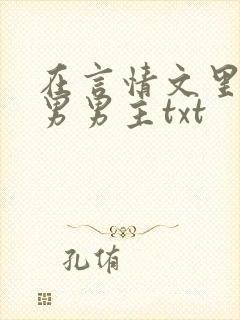 在言情文里
男男主txt
孔侑